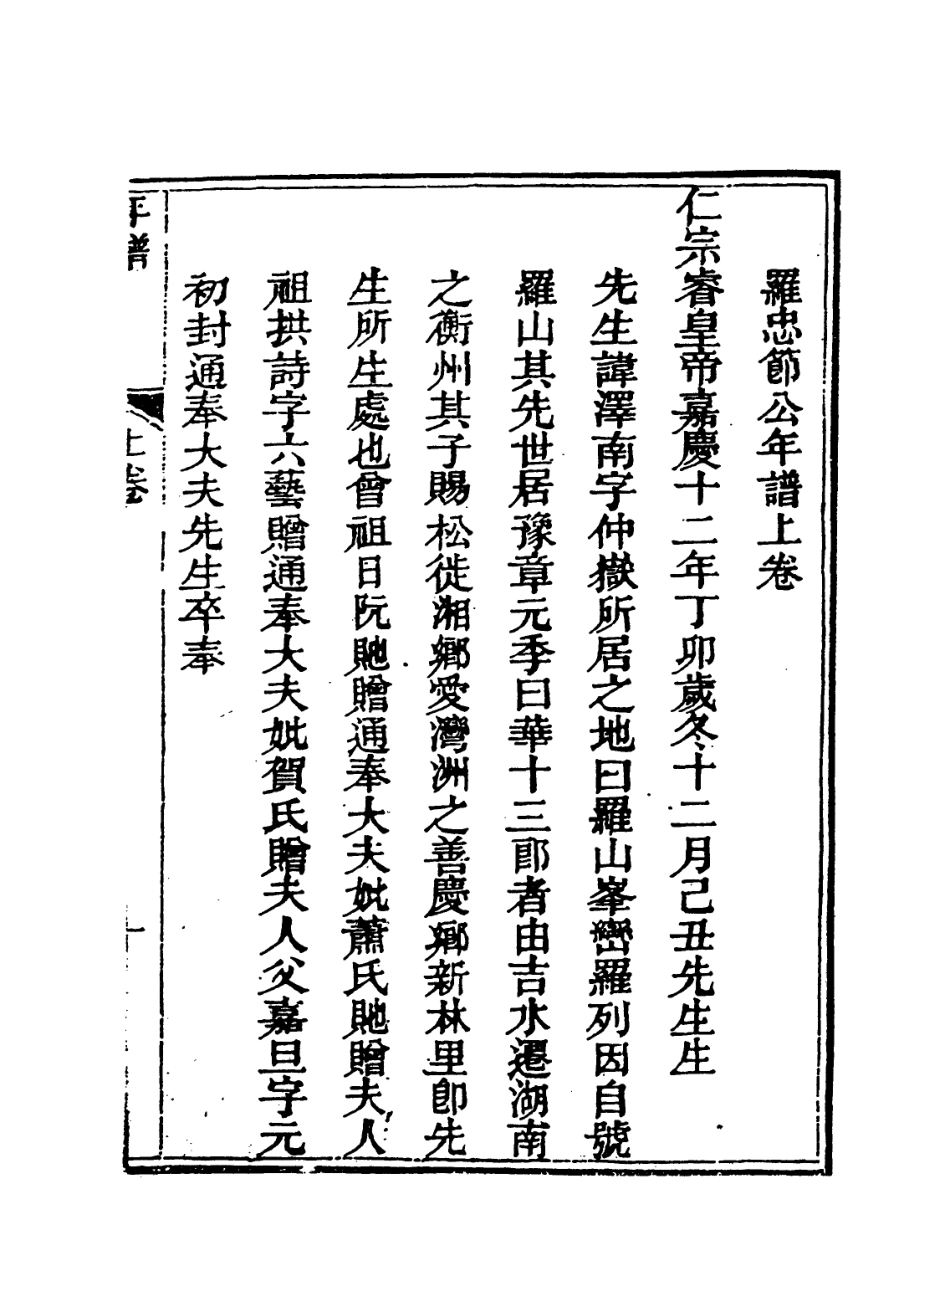 羅忠節公年譜上卷
仁宗睿皇帝嘉慶十二年丁卯歲冬十二月己丑先生生
先生諱澤南字仲嶽所居之地曰羅山峯巒羅列因自號
羅山其先世居豫章元季曰華十三郎者由吉水遷湖南
之衡州其子賜松徙湘鄉愛灣洲之善慶鄉新林里卽先
生所生處也曾祖日阮貤贈通奉大夫妣蕭氏貤贈夫人
祖拱詩字六藝贈通奉大夫妣賀氏贈夫人父嘉旦字元
初封通奉大夫先生卒奉
年譜
上卷
一